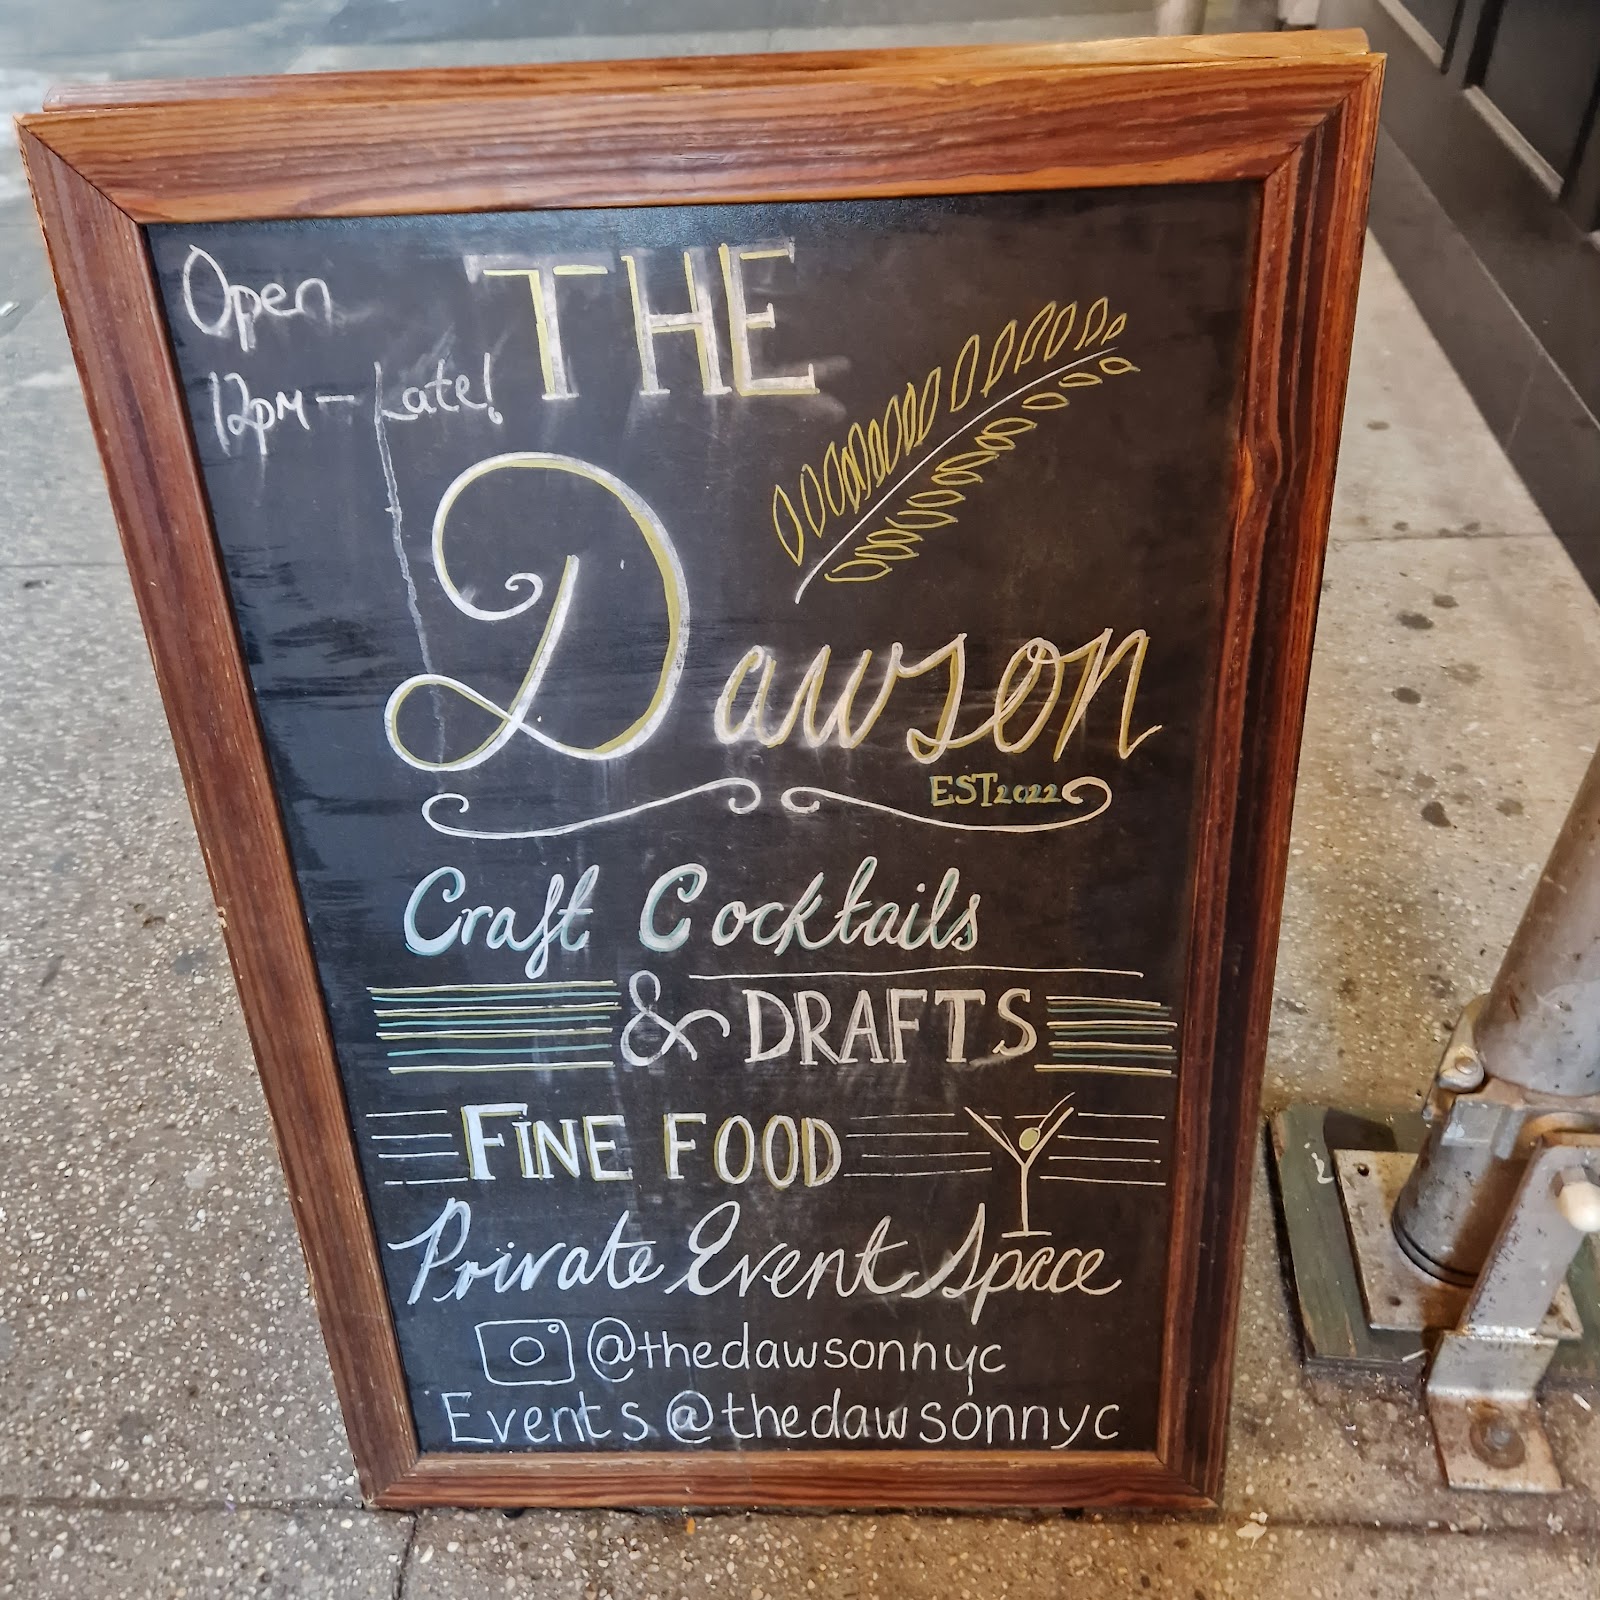 Open
12pm – Late!
THE
Dawson
EST 2022
Craft Cocktails
& DRAFTS
FINE FOOD
Private Event Space
@thedawsonnyc
Events@thedawsonnyc